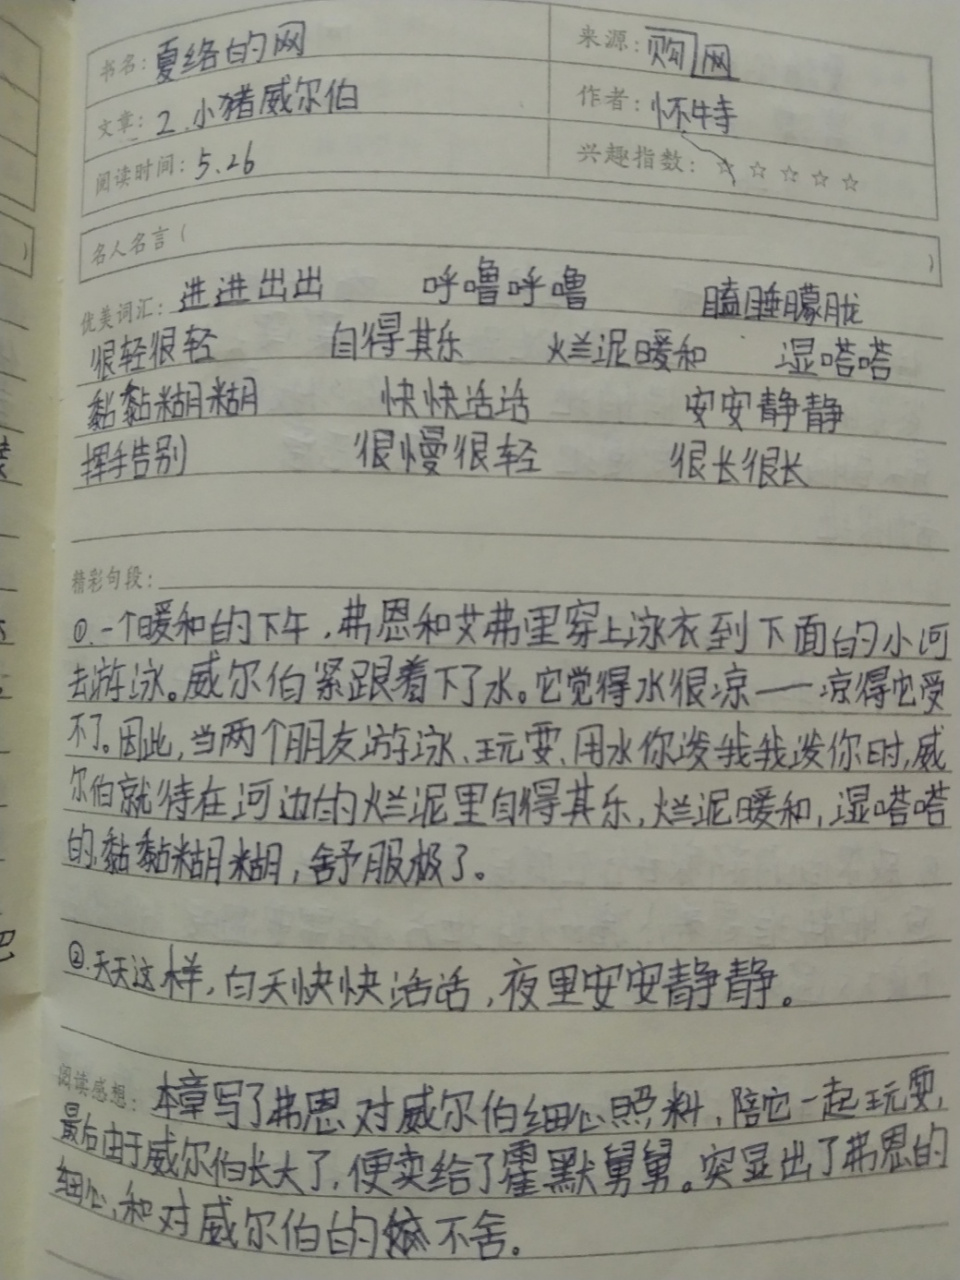 书名：夏络的网 来源：购网
文章：2.小猪威尔伯 作者：怀特
阅读时间：5.26 兴趣指数：☆☆☆☆☆
名人名言（ ）
优美词汇：进进出出 呼噜呼噜 瞌睡朦胧
很轻很轻 自得其乐 烂泥暖和 湿嗒嗒
黏黏糊糊 快快活活 安安静静
挥手告别 很慢很轻 很长很长
精彩句段：
①.一个暖和的下午，弗恩和艾弗里穿上泳衣到下面的小河
去游泳。威尔伯紧跟着下了水。它觉得水很凉——凉得它受
不了。因此，当两个朋友游泳、玩耍、用水你泼我我泼你时，威
尔伯就待在河边的烂泥里自得其乐，烂泥暖和，湿嗒嗒
的，黏黏糊糊，舒服极了。
②.天天这样，白天快快活活，夜里安安静静。
阅读感想：本章写了弗恩对威尔伯细心照料，陪它一起玩耍，
最后由于威尔伯长大了，便卖给了霍默舅舅。突显出了弗恩的
细心，和对威尔伯的不舍。